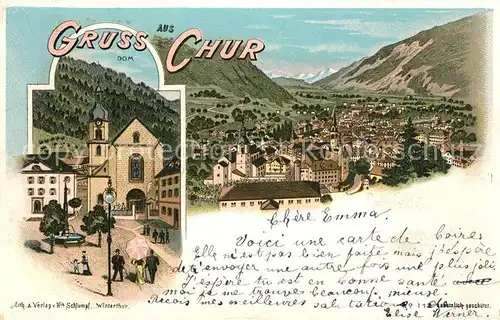 GRUSS AUS CHUR
DOM
Chère Emma.
Voici une carte de Coire,
Elle n'est pas bien faite mais j'espère
de t'envoyer une autre fois une plus jolie
J'espère tu est en bonne santé
moi je me trouve beaucoup mieux.
Reçois mes meilleures salutations
Elise Werner.
Lith. & Verlag v. Hch. Schlumpf, Winterthur.
Gesetzlich geschützt.